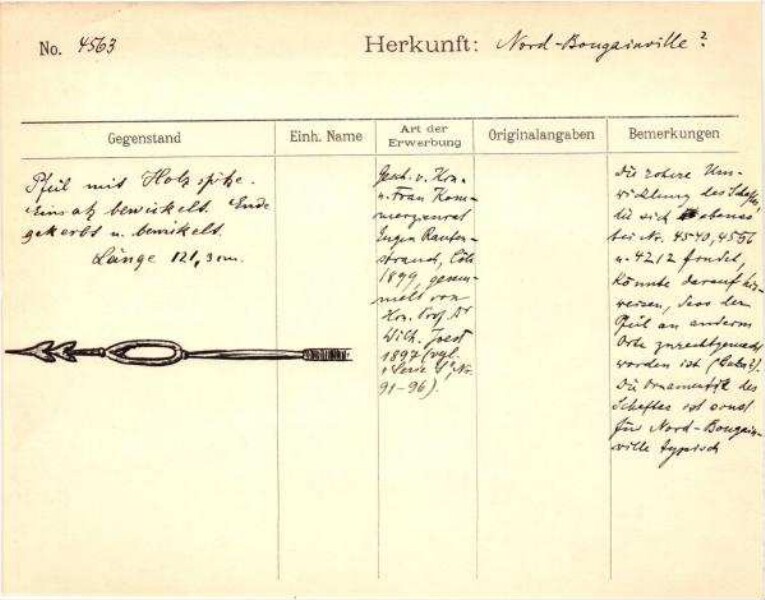 No. 4563
Herkunft: Nord-Bougainville?
Gegenstand
Einh. Name
Art der Erwerbung
Originalangaben
Bemerkungen
Pfeil mit Holzspitze.
Einsatz bewickelt. Ende
gekerbt u. bewickelt.
Länge 121,3 cm.
Gesch. v. Hrn.
u. Frau Kom-
merzienrat
Eugen Rauten-
strauch, Cöln
1899, gesam-
melt von
Hrn. Prof. Dr
Wilh. Joest
1897 (vgl.
"Serie S", Nr.
91-96).
Die rohere Um-
wicklung des Schaftes,
die sich ebenso
bei Nr. 4540, 4556
u. 4212 findet,
könnte darauf hin-
weisen, dass der
Pfeil an anderem
Orte zurechtgemacht
worden ist (?).
Die Ornamentik des
Schaftes ist sonst
für Nord-Bougain-
ville typisch